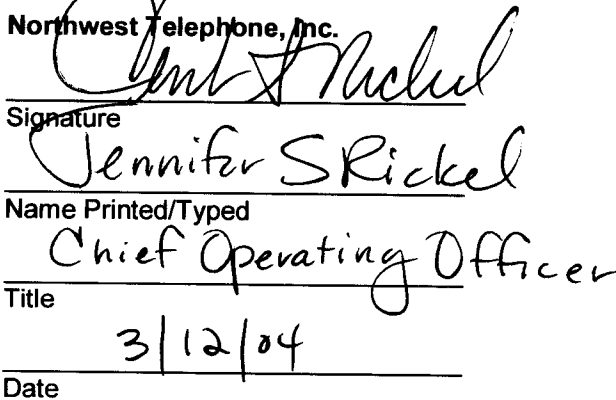 Northwest Telephone, Inc.
Signature
Jennifer S Rickel
Name Printed/Typed
Chief Operating Officer
Title
3/12/04
Date